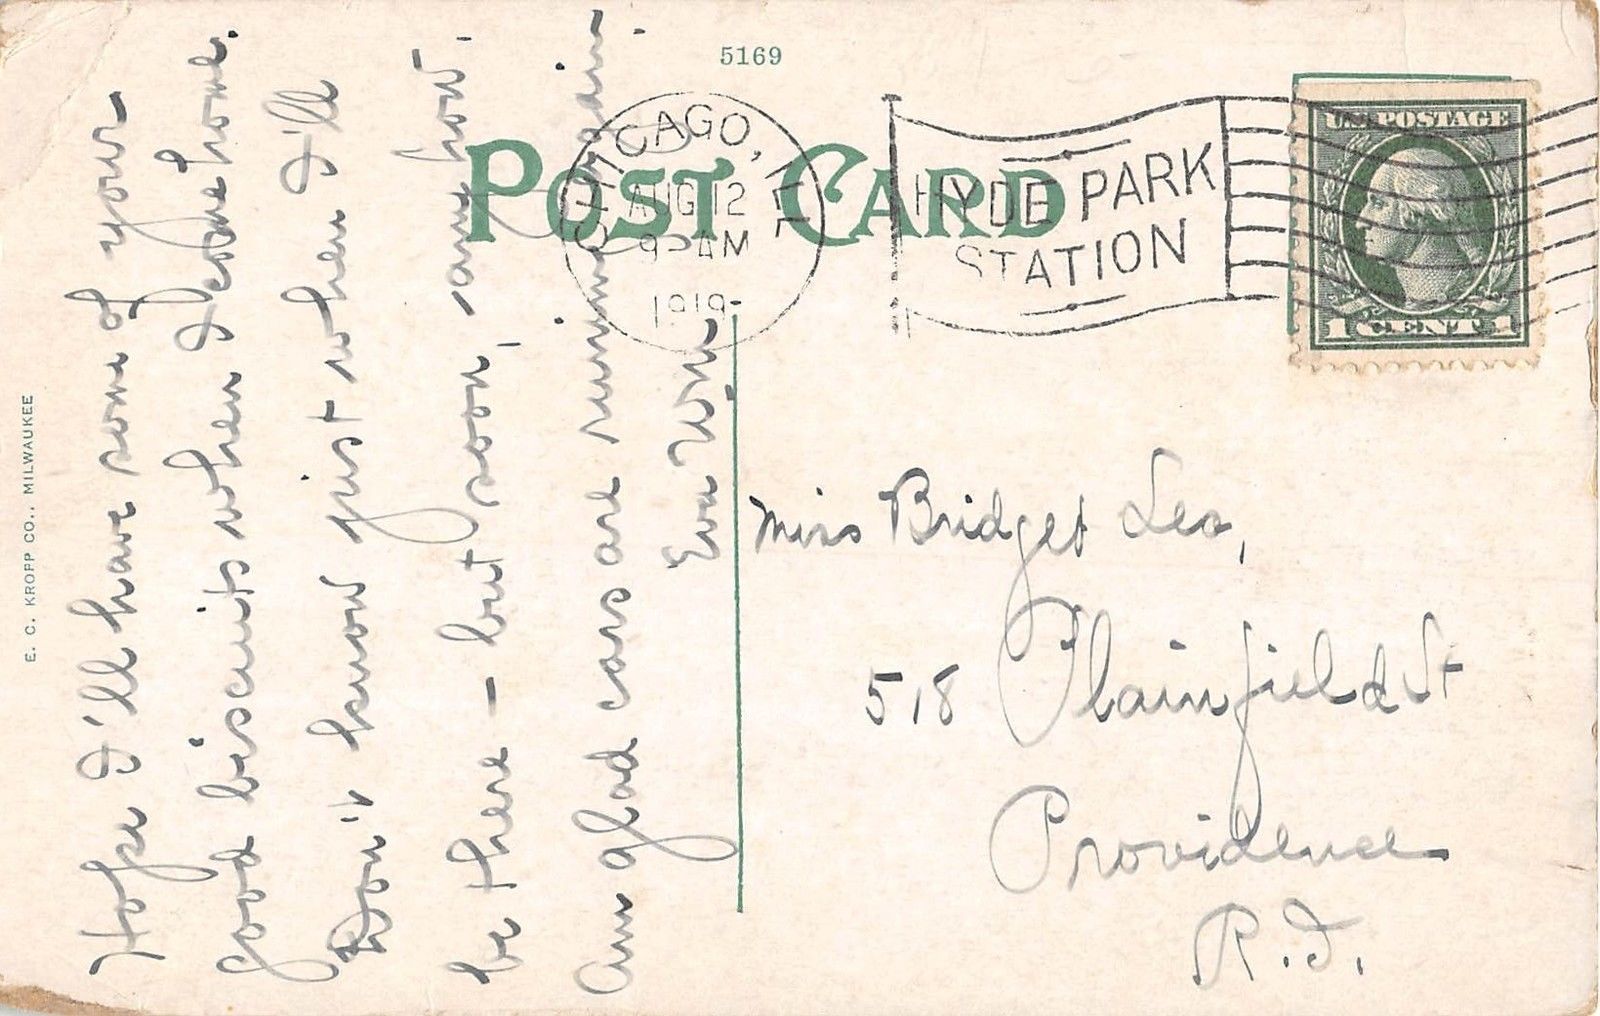 5169
POST CARD
CHICAGO, ILL.
AUG 12
9 AM
1919
HYDE PARK
STATION
U.S. POSTAGE
1 CENT 1
Hope I'll have some of your
good biscuits when I come home.
Don't know just when I'll
be there – but soon, any how.
Am glad cars are running again.
Eva
Miss Bridget Lea,
518 Plainfield St
Providence
R.I.
E. C. KROPP CO., MILWAUKEE